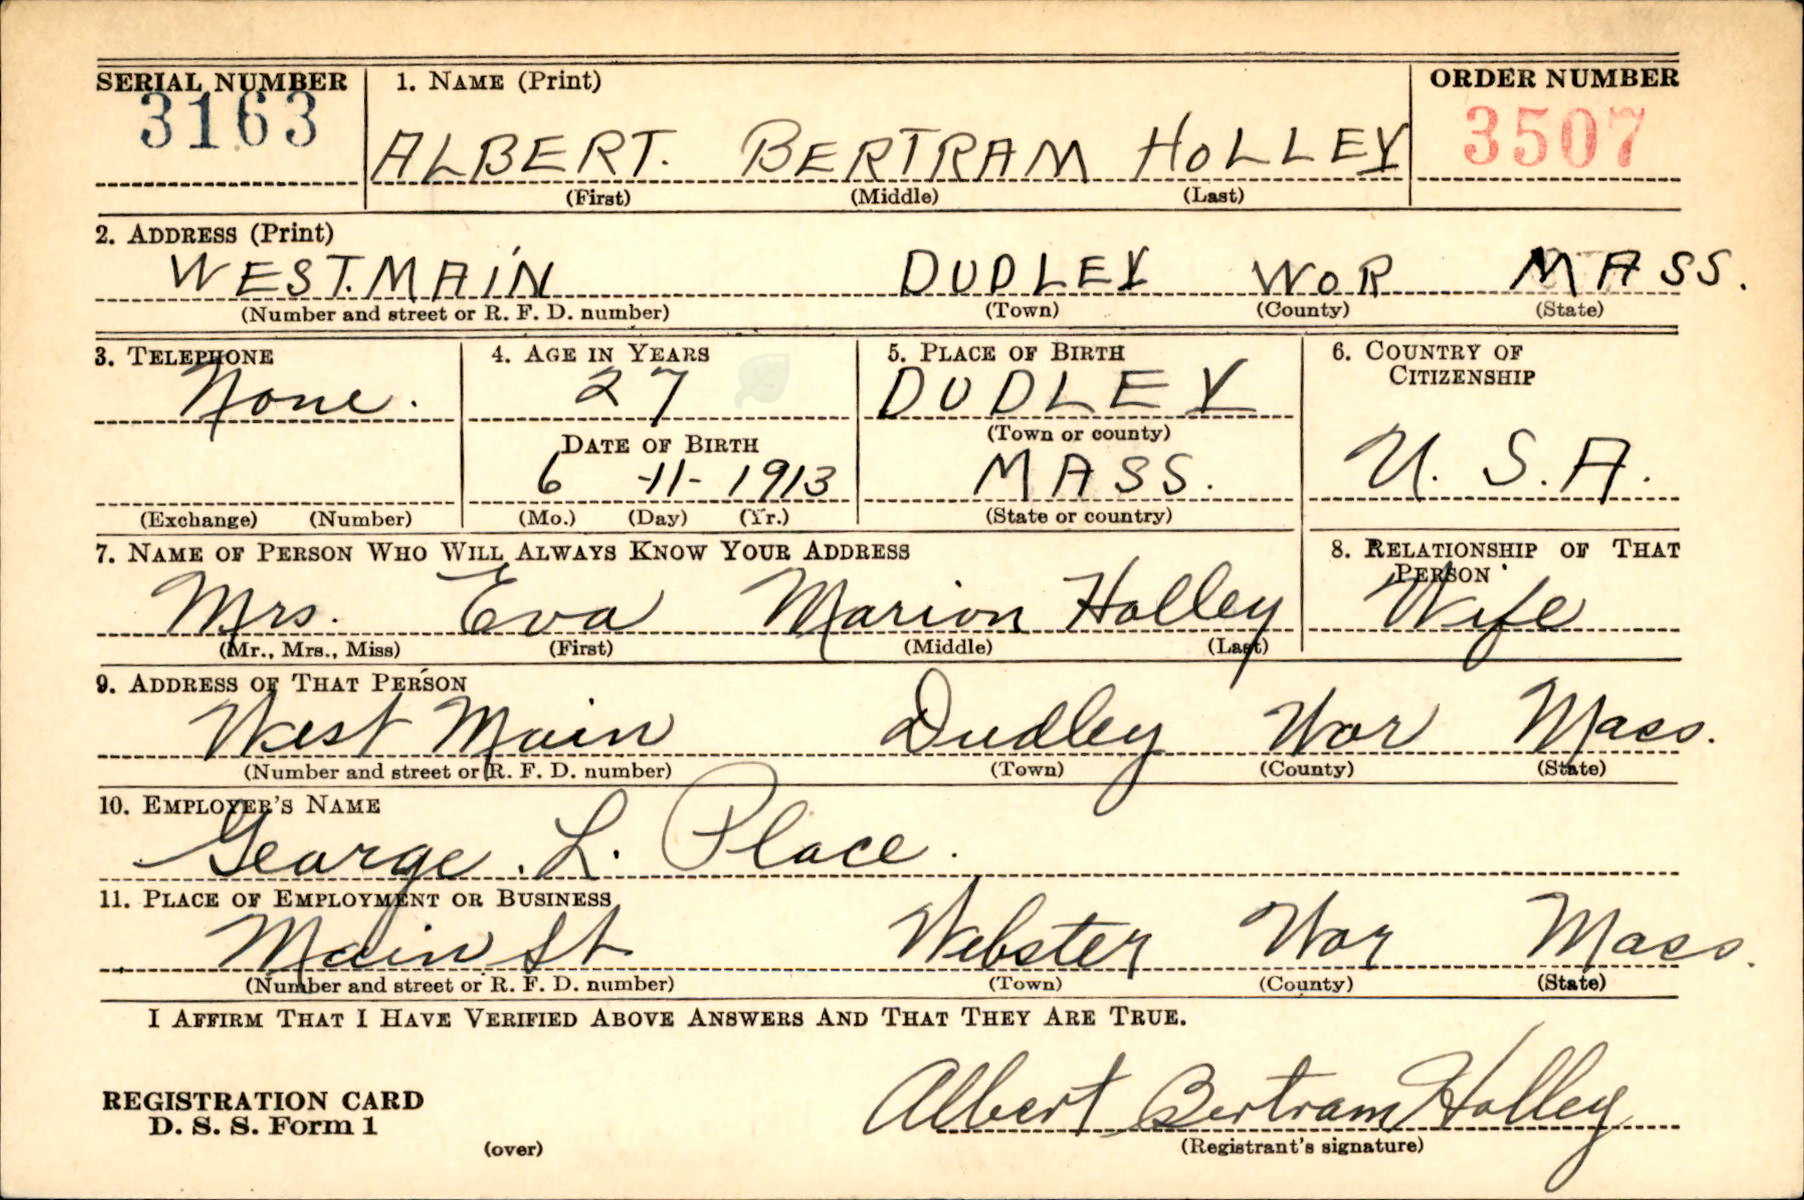 SERIAL NUMBER 1. NAME (Print) ORDER NUMBER
3163 ALBERT. BERTRAM HOLLEY 3507
(First) (Middle) (Last)
2. ADDRESS (Print)
WEST. MAIN DUDLEY WOR MASS.
(Number and street or R. F. D. number) (Town) (County) (State)
3. TELEPHONE 4. AGE IN YEARS 5. PLACE OF BIRTH 6. COUNTRY OF
CITIZENSHIP
None. 27 DUDLEY
(Town or county)
DATE OF BIRTH
6 -11- 1913 MASS. U. S. A.
(Exchange) (Number) (Mo.) (Day) (Yr.) (State or country)
7. NAME OF PERSON WHO WILL ALWAYS KNOW YOUR ADDRESS 8. RELATIONSHIP OF THAT
PERSON
Mrs. Eva Marion Holley Wife
(Mr., Mrs., Miss) (First) (Middle) (Last)
9. ADDRESS OF THAT PERSON
West Main Dudley Wor Mass.
(Number and street or R. F. D. number) (Town) (County) (State)
10. EMPLOYER'S NAME
George. L. Place.
11. PLACE OF EMPLOYMENT OR BUSINESS
Main St Webster Wor Mass.
(Number and street or R. F. D. number) (Town) (County) (State)
I AFFIRM THAT I HAVE VERIFIED ABOVE ANSWERS AND THAT THEY ARE TRUE.
Albert Bertram Holley
REGISTRATION CARD
D. S. S. Form 1
(over) (Registrant's signature)